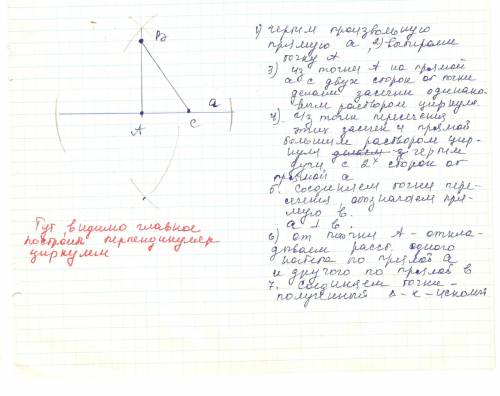 В
а
А
С
Тут видимо главное
построить перпендикуляр
циркулем
1) чертим произвольную
прямую а, 2) выбираем
точку А
3) из точки А на прямой
а с двух сторон от точки
делаем засечки одинако-
вым раствором циркуля
4. Из точек пересечения
этих засечек и прямой
большим раствором цир-
куля чертим
дуги с 2х сторон от
прямой а
5. Соединяем точки пере-
сечения, обозначаем пря-
мую в.
а ⊥ в.
6) от точки А - откла-
дываем расст. одного
катета по прямой а
и другого по прямой в
7. Соединяем точки -
полученный Δ-к - искомый